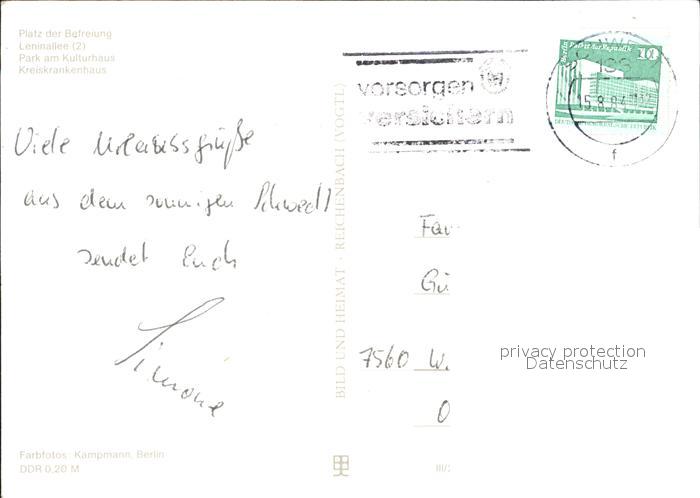 Platz der Befreiung
Leninallee (2)
Park am Kulturhaus
Kreiskrankenhaus
vorsorgen
versichern
Berlin Palast der Republik 10
DEUTSCHE DEMOKRATISCHE REPUBLIK
15.8.84
f
Viele Urlaubsgrüße
aus dem sonnigen Schwedt
sendet Euch
Simone
BILD UND HEIMAT · REICHENBACH (VOGTL)
Fam
Gü
7560 W.
O
privacy protection
Datenschutz
Farbfotos: Kampmann, Berlin
DDR 0,20 M
III/